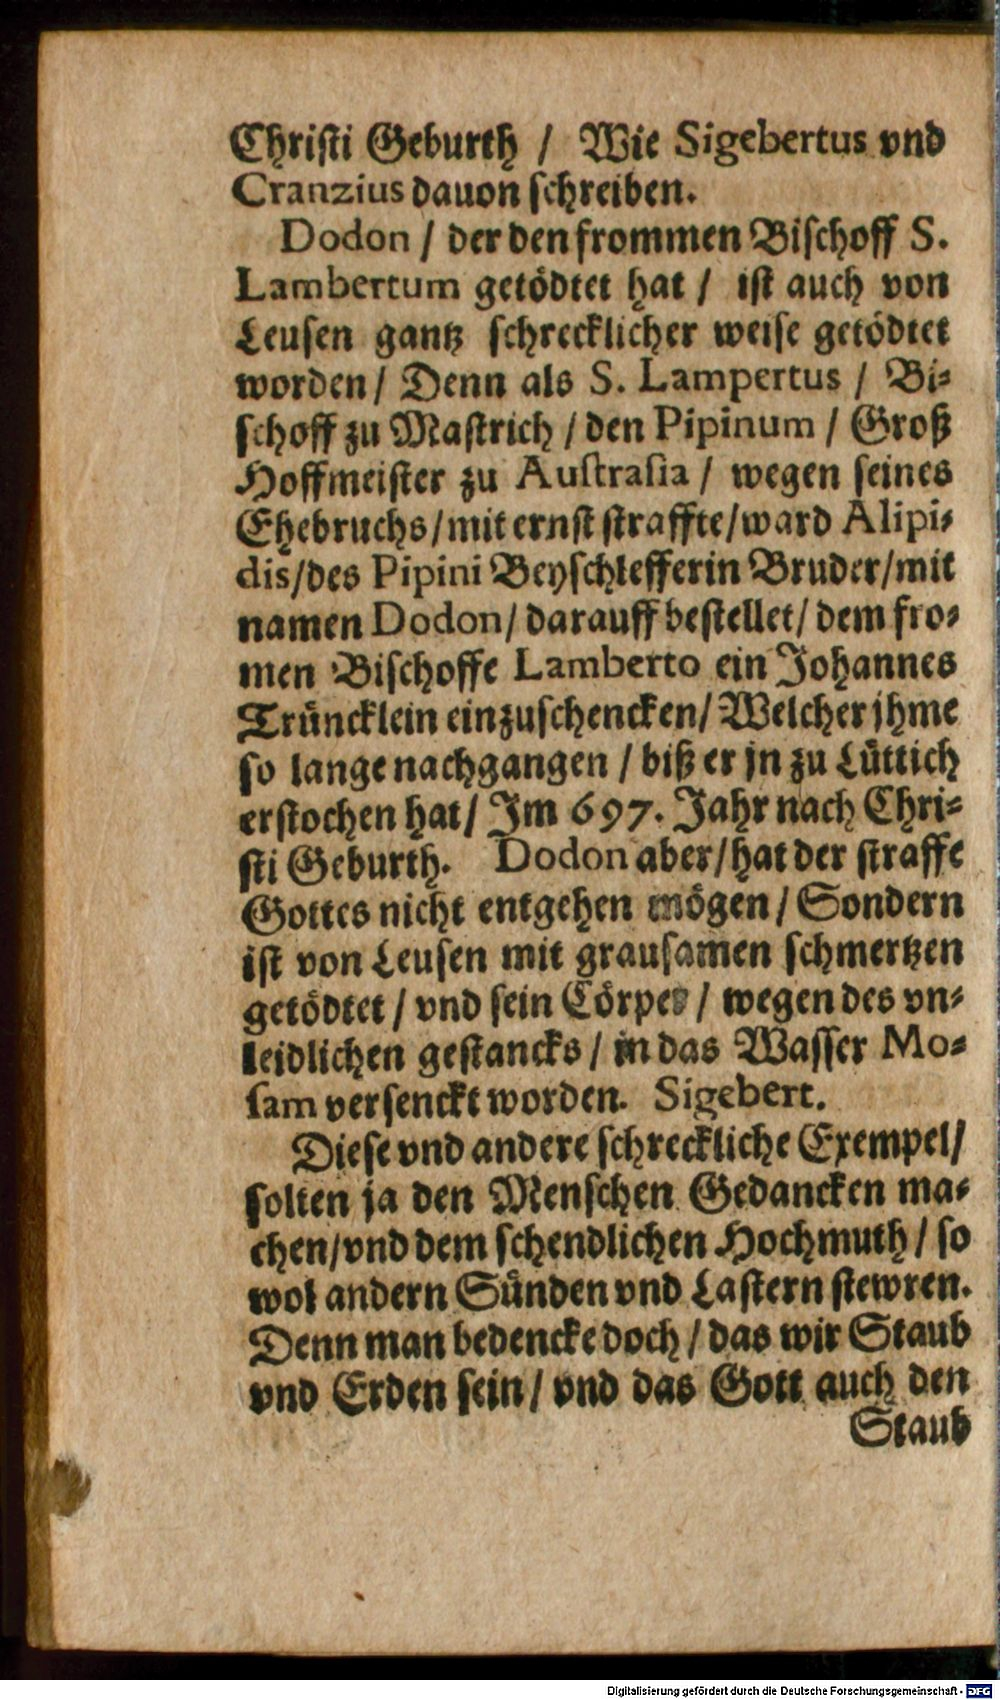 Christi Geburth / Wie Sigebertus vnd
Cranzius dauon schreiben.
Dodon / der den frommen Bischoff S.
Lambertum getödtet hat / ist auch von
Leusen gantz schrecklicher weise getödtet
worden / Denn als S. Lampertus / Bi-
schoff zu Mastrich / den Pipinum / Groß
Hoffmeister zu Austrasia / wegen seines
Ehebruchs / mit ernst straffte / ward Alipi-
dis / des Pipini Beyschlefferin Bruder / mit
namen Dodon / darauff bestellet / dem fro-
men Bischoffe Lamberto ein Johannes
Trüncklein einzuschencken / Welcher jhme
so lange nachgangen / biß er jn zu Lüttich
erstochen hat / Im 697. Jahr nach Chri-
sti Geburth. Dodon aber / hat der straffe
Gottes nicht entgehen mögen / Sondern
ist von Leusen mit grausamen schmertzen
getödtet / vnd sein Cörper / wegen des vn-
leidlichen gestancks / in das Wasser Mo-
sam versenckt worden. Sigebert.
Diese vnd andere schreckliche Exempel /
solten ja den Menschen Gedancken ma-
chen / vnd dem schendlichen Hochmuth / so
wol andern Sünden vnd Lastern stewren.
Denn man bedencke doch / das wir Staub
vnd Erden sein / vnd das Gott auch den
Staub
Digitalisierung gefördert durch die Deutsche Forschungsgemeinschaft - DFG